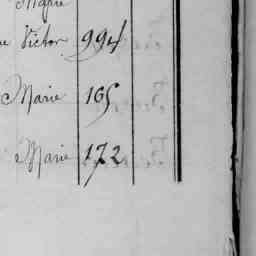 Marie
Victor 994
Marie 165
Marie 172